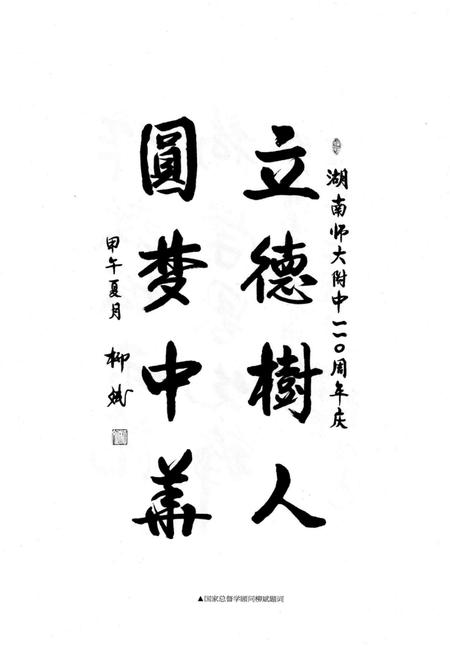 湖南师大附中一一〇周年庆
立德樹人
圓梦中華
甲午夏月 柳斌
▲国家总督学顾问柳斌题词